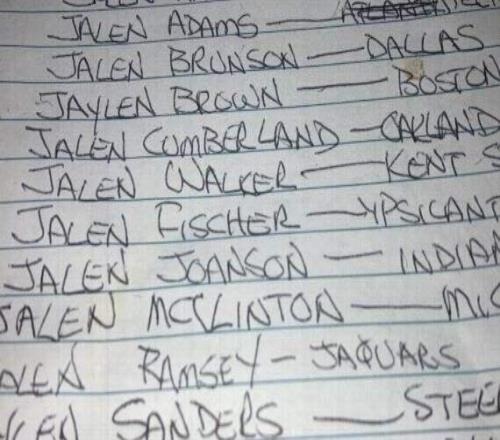 JALEN ADAMS —
JALEN BRUNSON — DALLAS
JAYLEN BROWN — BOSTON
JALEN CUMBERLAND — OAKLAND
JALEN WALKER — KENT S
JALEN FISCHER — YPSICANT
JALEN JOANSON — INDIAN
JALEN MCCLINTON — MIC
ALEN RAMSEY - JAQUARS
LEN SANDERS — STEE